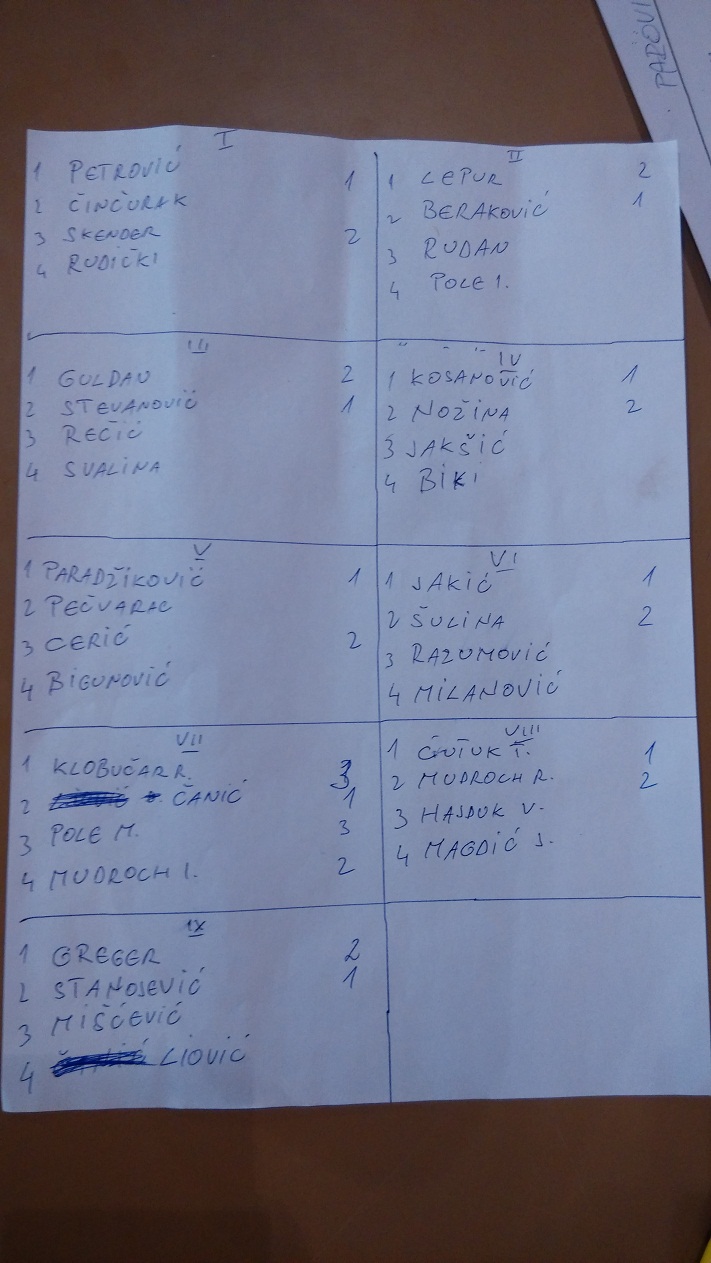 PAROVI
I
1 PETROVIĆ 1
2 ČINČURAK
3 SKENDER 2
4 RUDIČKI
II
1 LEPUR 2
2 BERAKOVIĆ 1
3 RUDAN
4 POLE I.
III
1 GULDAN 2
2 STEVANOVIĆ 1
3 REČIĆ
4 SVALINA
IV
1 KOSANOVIĆ 1
2 NOŽINA 2
3 JAKŠIĆ
4 BIKI
V
1 PARADŽIKOVIĆ 1
2 PEČVARAC
3 CERIĆ 2
4 BIGUNOVIĆ
VI
1 JAKIĆ 1
2 ŠULINA 2
3 RAZUMOVIĆ
4 MILANOVIĆ
VII
1 KLOBUČAR R. 3
2 ČANIĆ 1
3 POLE M. 3
4 MUDROCH I. 2
VIII
1 T. 1
2 MUDROCH R. 2
3 HAJDUK V.
4 MAGDIĆ J.
IX
1 GREGER 2
2 STANOJEVIĆ 1
3 MIŠČEVIĆ
4 LIOVIĆ